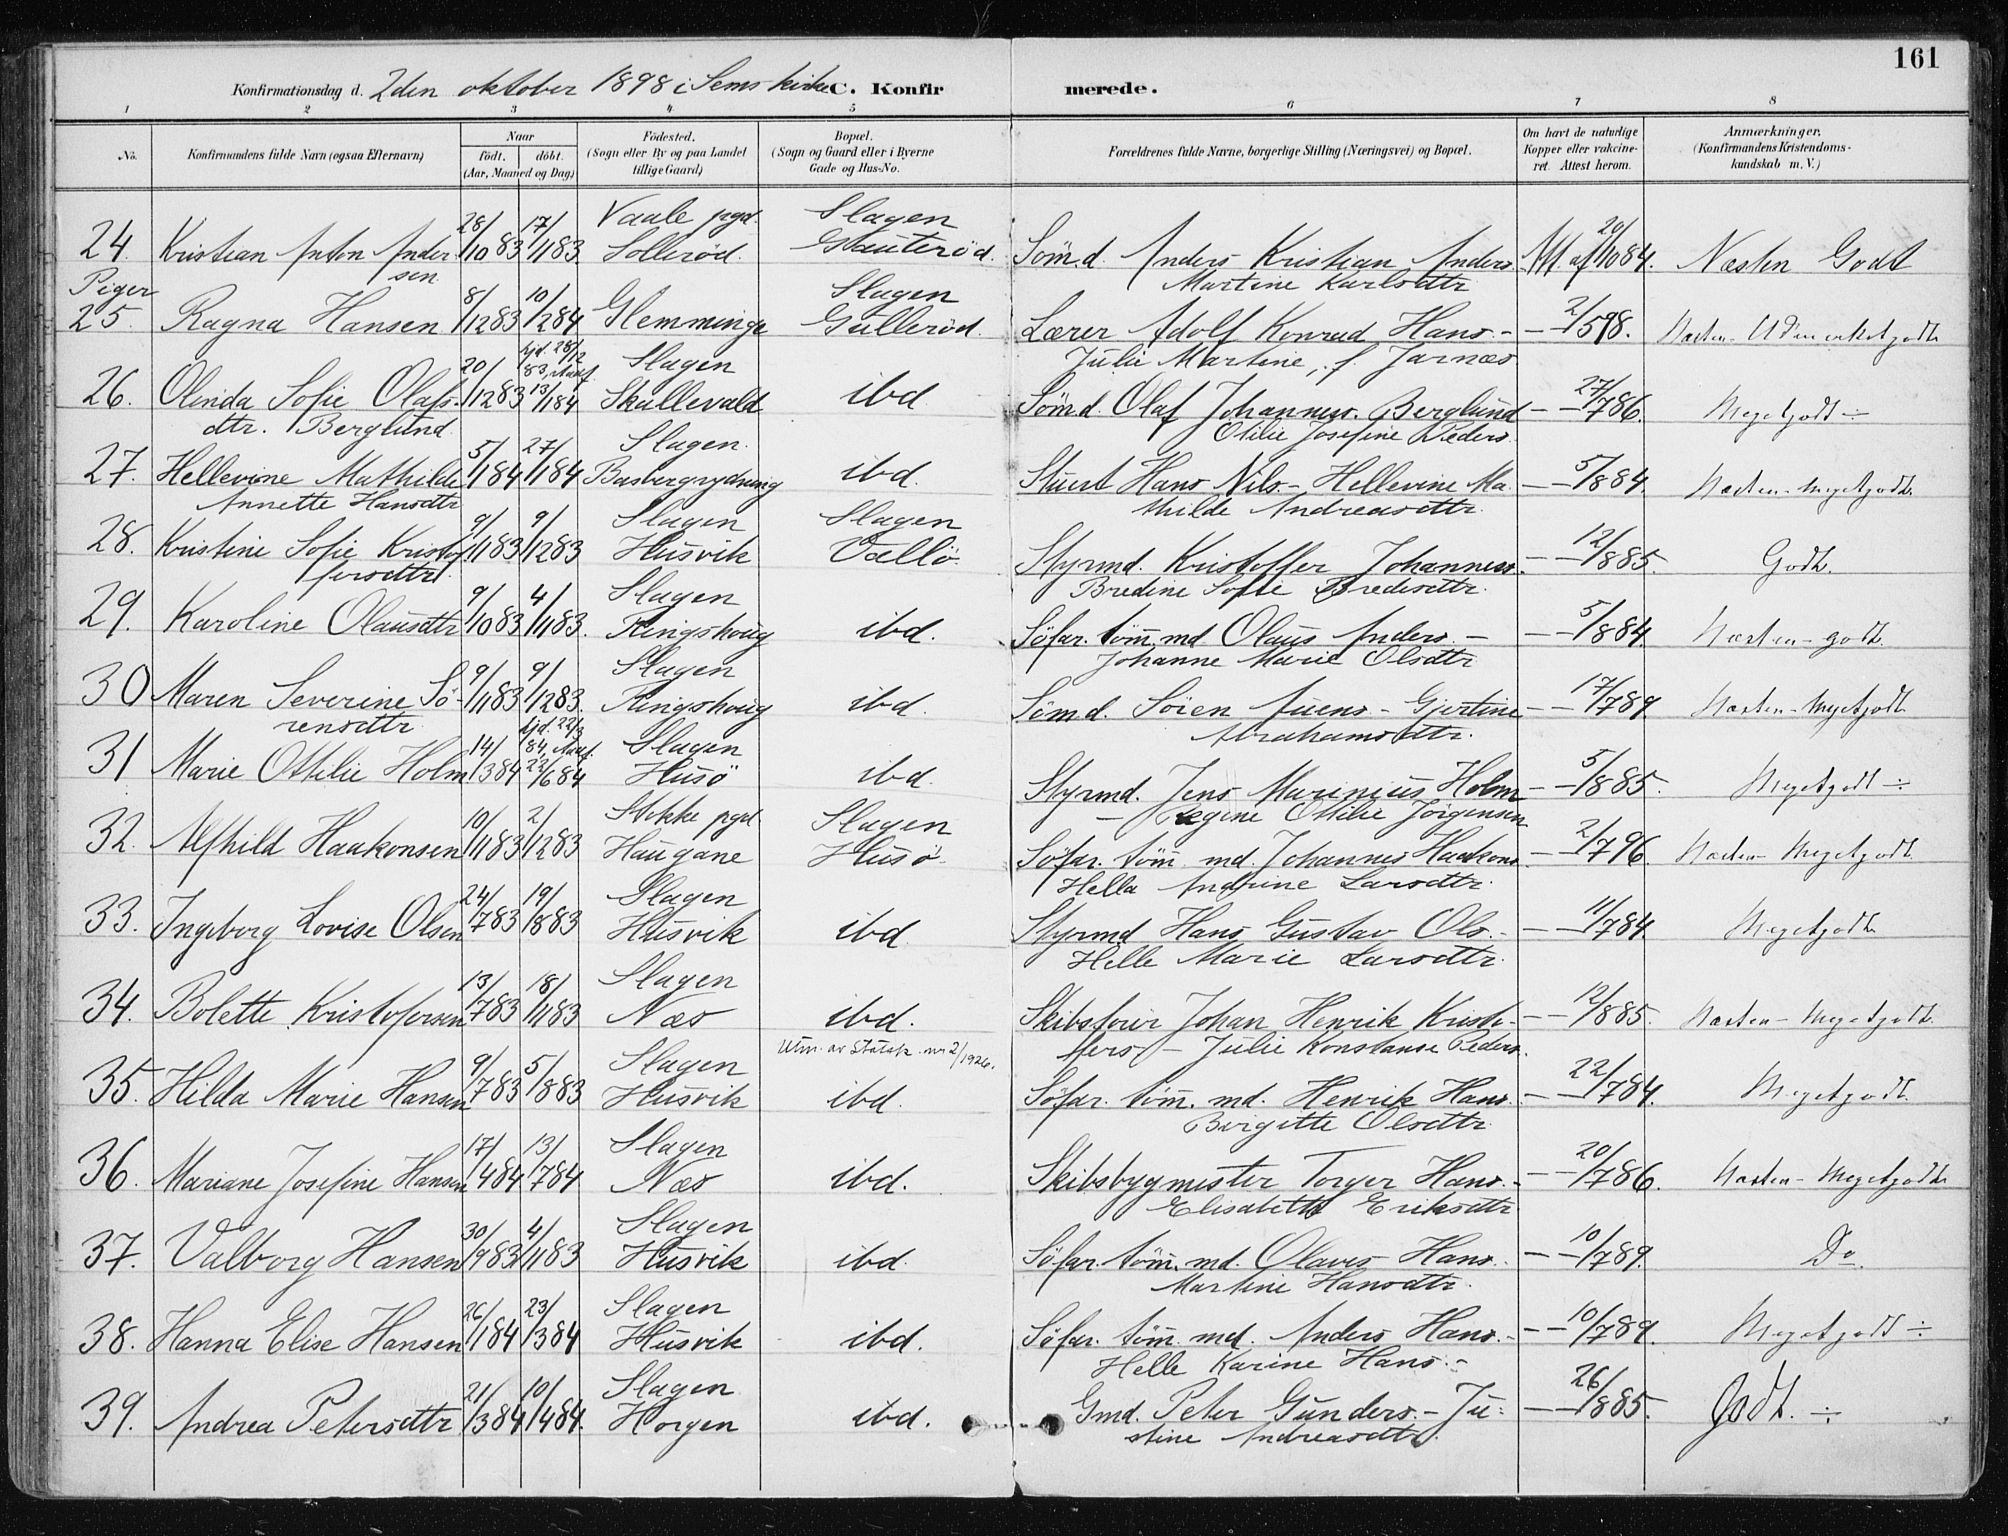 161
Konfirmationsdag d. 2den oktober 1898 i Sems kirke C. Konfirmerede.
1 2 3 4 5 6 7 8
No. Konfirmandens fulde Navn (ogsaa Efternavn) Naar født. døbt. (Aar, Maaned og Dag) Fødested. (Sogn eller By og paa Landet tillige Gaard) Bopæl. (Sogn og Gaard eller i Byerne Gade og Hus-No.) Forældrenes fulde Navne, borgerlige Stilling (Næringsvei) og Bopæl. Om havt de naturlige Kopper eller vakcineret. Attest herom. Anmærkninger. (Konfirmandens Kristendomskundskab m. V.)
28/ 17/ Vaale pgd. Slagen
24. Kristian Anton Ander 10 83 11 83. Sollerød. Glauterød. Sømd. Anders Kristian Anders. Att. af 20/10 84. Næsten Godt
sen Martine Karlsdtr
Piger 8/ 10/ Slagen
25. Ragna Hansen 12 83 2 84 Glemminge Gullerød. Lærer Adolf Konrad Hans.- — — 2/5 98. Næsten-Udmerketgodt
Julie Martine, f. Jarnæs
20/ hjd. 28/12 83, Slagen
26. Olinda Sofie Olafs- 12 83 13/1 84 Skallevald ibd Sømd. Olaf Johanness. Berglund — — 27/7 86. Megetgodt ÷
dtr. Berglund. Otilie Josefine Peders.
5/ 27/ Slagen.
27. Hellevine Mathilde 1 84 1 84 Basbergrydning ibd. Stuert Hans Nils.- Hellevine Ma- — — 5/8 84. Næsten-megetgodt.
Annette Hansdtr thilde Andreasdtr.
9/ 9/ Slagen Slagen
28. Kristine Sofie Kristof 11 83 12 83 Husvik Vallø Styrmd. Kristoffer Johanness. — — 12/8 85. Godt.
fersdtr. Bredine Sofie Bredesdtr.
9/ 4/ Slagen
29. Karoline Olausdtr 10 83 11 83. Ringshoug ibd. Søfar. tøm. md. Olaus Anders.- — — 5/8 84. Næsten-godt.
Johanne Marie Olsdtr
9/ 9/ Slagen
30 Maren Severine Sø- 11 83 12 83. Ringshoug ibd. Sømd. Søren Iuens.- Gjertine — — 17/7 89. Næsten-Megetgodt
rensdtr. Abrahamsdtr.
14/ hjd. 22/3 84, Slagen
31 Marie Ottilie Holm 3 84 22/6 84 Husø ibd. Styrmd. Jens Marinius Holm — — 5/8 85. Megetgodt ÷
— Regine Ottilie Jørgensen
10/ 2/ Stokke pgd Slagen
32. Alfhild Haakonsen 11 83 12 83 Haugane Husø Søfar. tøm. md. Johannes Haakons. — — 2/7 96 Næsten-Megetgodt
Hella Andrine Larsdtr.
24/ 19/ Slagen
33. Ingeborg Lovise Olsen 7 83 8 83 Husvik ibd Styrmd Hans Gustav Ols.- — — 11/7 84. Megetgodt
Helle Marie Larsdtr.
13/ 18/ Slagen
34. Bolette Kristofersen 7 83 11 83 Næs ibd. Skibsfører Johan Henrik Kristo- — — 12/8 85. Næsten-Megetgodt.
Utm. av Statsk. nr 2/1926. fers.- Julie Konstanse Peders.
9/ 5/ Slagen
35. Hilda Marie Hansen 7 83 8 83 Husvik ibd. Søfar. tøm. md. Henrik Hans. — — 22/7 84. Megetgodt
Bergitte Olsdtr.
17/ 13/ Slagen
36. Mariane Josefine Hansen 4 84 7 84 Næs ibd. Skibsbygmester Torger Hans.- — — 20/7 86. Næsten-Megetgodt
Elisabeth Eriksdtr
30/ 4/ Slagen
37. Valborg Hansen 9 83 11 83 Husvik ibd. Søfar. tøm. md. Olaves Hans.- — — 10/7 89. Do
Martine Hansdtr.
26/ 23/ Slagen
38. Hanna Elise Hansen 1 84 3 84 Husvik ibd. Søfar. tøm. md. Anders Hans.- — — 10/7 89. Megetgodt ÷
Helle Karine Hans.-
21/ 10/ Slagen
39. Andrea Petersdtr 3 84 4 84. Horgen ibd. Gmd. Peter Gunders.- Ju- — — 26/8 85. Godt. ÷
stine Andreasdtr.